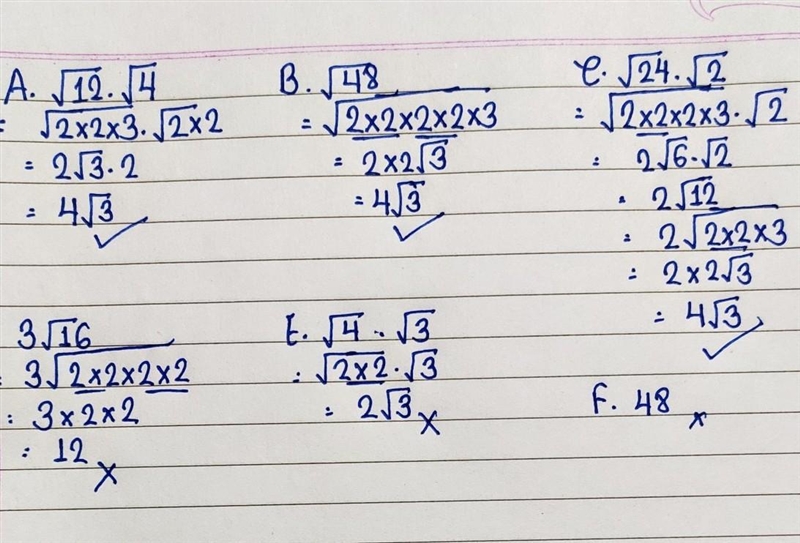 A. √12 · √4
= √2×2×3 · √2×2
= 2√3 · 2
= 4√3 ✓
B. √48
= √2×2×2×2×3
= 2×2√3
= 4√3 ✓
C. √24 · √2
= √2×2×2×3 · √2
= 2√6 · √2
= 2√12
= 2√2×2×3
= 2×2√3
= 4√3 ✓
3√16
= 3√2×2×2×2
= 3×2×2
= 12 ×
E. √4 · √3
= √2×2 · √3
= 2√3 ×
F. 48 ×